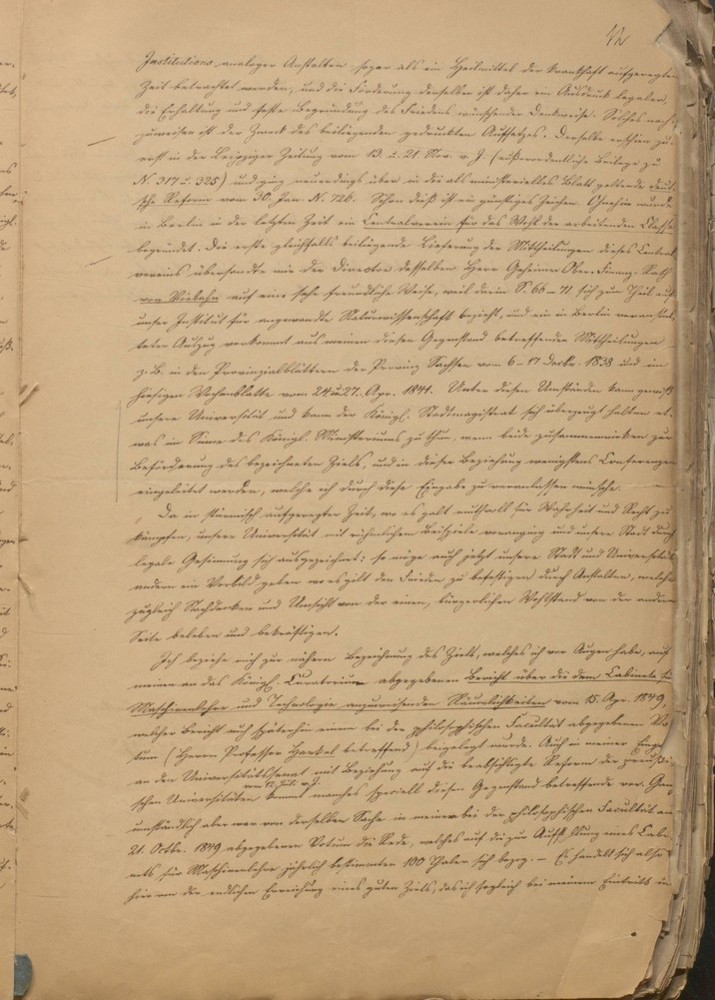 Institutionen analoger Anstalten sogar als ein Heilmittel der krankhaft aufgeregten
Zeit betrachtet werden, und die Förderung derselben ist daher ein Ausdruck legaler,
die Erhaltung und feste Begründung des Friedens wünschender Denkweise. Solches nach-
zuweisen ist der Zweck des beiliegenden gedruckten Aufsatzes. Derselbe erschien zu-
erst in der Leipziger Zeitung vom 13. u. 21 Nov. v. J. (außerordentliche Beilage zu
N. 317 u. 325) und ging neuerdings über in die als ministerielles Blatt geltende deut-
sche Reform vom 30. Jan. N. 726. Schon dieß ist ein günstiges Zeichen. Ohnehin wurde
in Berlin in der letzten Zeit ein Centralverein für das Wohl der arbeitenden Classe
begründet. Die erste gleichfalls beiliegende Lieferung der Mittheilungen dieses Central-
vereins übersandte mir der Director desselben Herr Geheimer Ober-Finanz-Rath
von Viebahn auf eine sehr freundliche Weise, weil darin S. 66–71 sich zum Theil auf
unser Institut für angewandte Naturwissenschaft bezieht, und ein in Berlin veranstal-
teter Auszug vorkommt aus meinen diesen Gegenstand betreffenden Mittheilungen
z. B. in den Provinzialblättern der Provinz Sachsen vom 6–17 Decbr. 1838 und im
hiesigen Wochenblatte vom 24 u 27. Apr. 1841. Unter diesen Umständen kann gewiß
unsere Universität und kann der Königl. Stadtmagistrat sich überzeugt halten et-
was im Sinne des Königl. Ministeriums zu thun, wenn beide zusammenwirken zur
Beförderung des bezeichneten Ziels, und in dieser Beziehung wenigstens Conferenzen
eingeleitet werden, welche ich durch diese Eingabe zu veranlassen wünsche.
Da in stürmisch aufgeregter Zeit, wo es galt für Wahrheit und Recht zu
kämpfen, unsere Universität mit rühmlichem Beispiele voranging und unsere Stadt durch
legale Gesinnung sich ausgezeichnet: so möge auch jetzt unsere Stadt und Universität
andern ein Vorbild geben wo es gilt den Frieden zu befestigen durch Anstalten, welche
zugleich Nachdenken und Umsicht von der einen, bürgerlichen Wohlstand von der andern
Seite beleben und bekräftigen.
Ich beziehe mich zur nähern Bezeichnung des Ziels, welches ich vor Augen habe, auf
meinen an das Königl. Curatorium abgegebenen Bericht über die dem Cabinete für
Maschinenlehre und Technologie anzuweisenden Räumlichkeiten vom 15. Apr. 1849,
welcher Bericht auch späterhin einem bei der philosophischen Facultät abgegebenen Vo-
tum (Herrn Professor Hankel betreffend) beigelegt wurde. Auch in meiner Eingabe
an den Universitätssenat mit Beziehung auf die beabsichtigte Reform der preußi-
vom 12 Juli v. J.
schen Universitäten kommt manches speciell diesen Gegenstand betreffende vor. Ganz
umständlich aber war von derselben Sache in meinem bei der philosophischen Facultät am
21. Octbr. 1849 abgegebenen Votum die Rede, welches auf die zur Aufstellung eines Cabi-
nets für Maschinenlehre jährlich bestimmten 100 Thaler sich bezog. – Es handelt sich also
hier von der endlichen Erreichung eines guten Ziels, das ich sogleich bei meinem Eintritt in